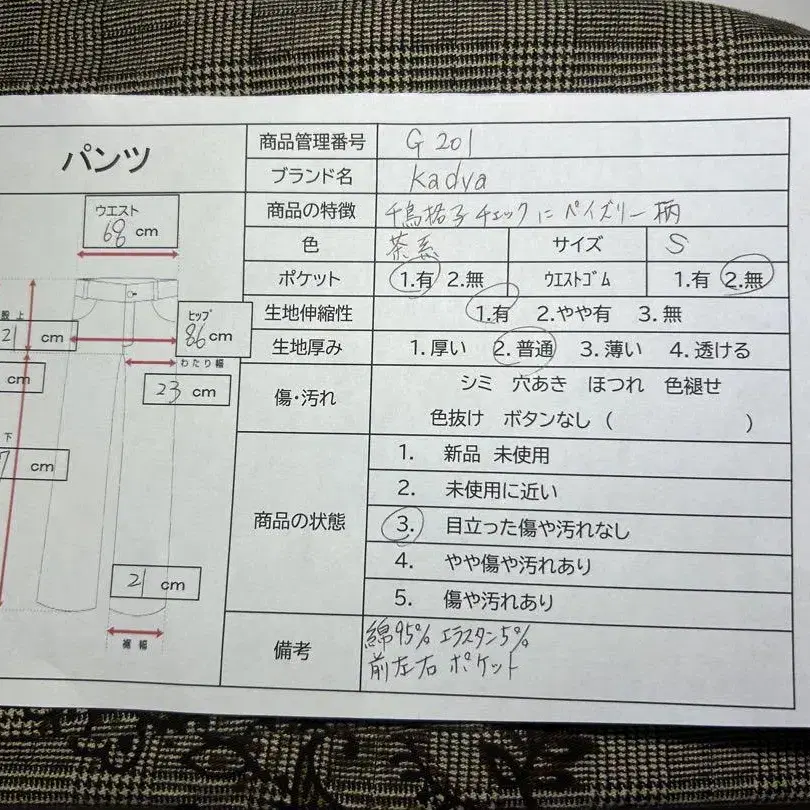 パンツ
ウエスト
68 cm
股上
21 cm
ヒップ
86 cm
わたり幅
23 cm
cm
下
7 cm
21 cm
裾幅
商品管理番号 G 201
ブランド名 kadya
商品の特徴 千鳥格子チェックにペイズリー柄
色 茶系 サイズ S
ポケット 1.有 2.無 ウエストゴム 1.有 2.無
生地伸縮性 1.有 2.やや有 3.無
生地厚み 1.厚い 2.普通 3.薄い 4.透ける
傷・汚れ シミ 穴あき ほつれ 色褪せ
色抜け ボタンなし ( )
商品の状態
1. 新品 未使用
2. 未使用に近い
3. 目立った傷や汚れなし
4. やや傷や汚れあり
5. 傷や汚れあり
備考 綿95% エラスタン5%
前左右 ポケット